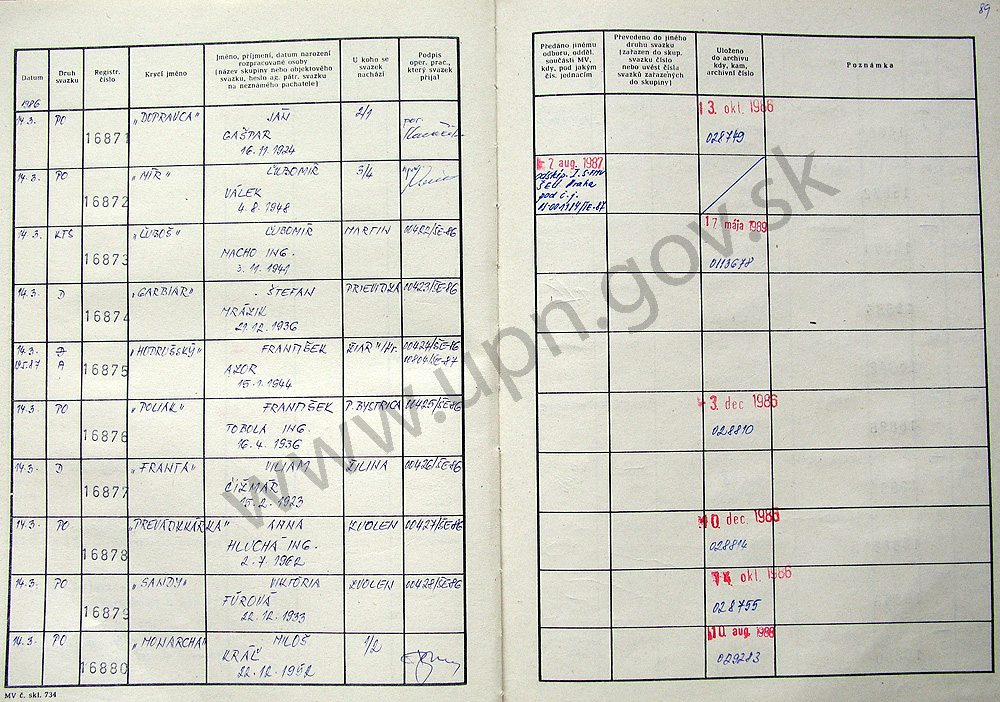 89
Datum
Druh
svazku
Registr.
číslo
Krycí jméno
Jméno, příjmení, datum narození
rozpracované osoby
(název skupiny nebo objektového
svazku, heslo ag. pátr. svazku
na neznámého pachatele)
U koho se
svazek
nachází
Podpis
oper. prac.,
který svazek
přijal
Předáno jinému
odboru, odděl.
součásti MV,
kdy, pod jakým
čís. jednacím
Převedeno do jiného
druhu svazku
(zařazen do skup.
svazku číslo
nebo uvést čísla
svazků zařazených
do skupiny)
Uloženo
do archivu
kdy, kam,
archivní číslo
Poznámka
1986
14.3. PO 16871 "DOPRAVCA" JÁN 2/1
GAŠPAR
16.11.1924
13. okt. 1986
028749
14.3. PO 16872 "MÍR" ĽUBOMÍR 3/4
VÁLEK
4.8.1948
7 aug. 1987
Praha
pod č.j.
14.3. KTS 16873 "ĽUBOŠ" ĽUBOMÍR MARTIN 00422/ŠE-86
MACHO ING.
3.11.1941
17 mája 1989
0113678
14.3. D 16874 "GARBIAR" ŠTEFAN PRIEVIDZA 00423/ŠE-86
MRÁZIK
21.12.1936
14.3. 16875 "HODRUŠSKÝ" FRANTIŠEK ŽIAR n/Hr. 00424/ŠE-86
A AZOR 00804/ŠE-87
15.1.1944
14.3. PO 16876 "POLIAK" FRANTIŠEK P. BYSTRICA 00425/ŠE-86
TOBOLA ING.
16.4.1936
3. dec 1986
028810
14.3. D 16877 "FRANTA" VILIAM ŽILINA 00426/ŠE-86
ČIŽMÁR
15.2.1923
14.3. PO 16878 "PREVÁDZKÁRKA" ANNA ZVOLEN 00427/ŠE-86
HLUCHÁ ING.
2.7.1962
10. dec. 1986
028814
14.3. PO 16879 "SANDY" VIKTÓRIA ZVOLEN 00428/ŠE-86
FÚROVÁ
22.12.1933
14. okt. 1986
028755
14.3. PO 16880 "MONARCHA" MILOŠ 1/2
KRÁĽ
22.12.1962
10 aug. 1988
029283
MV č. skl. 734
www.upn.gov.sk